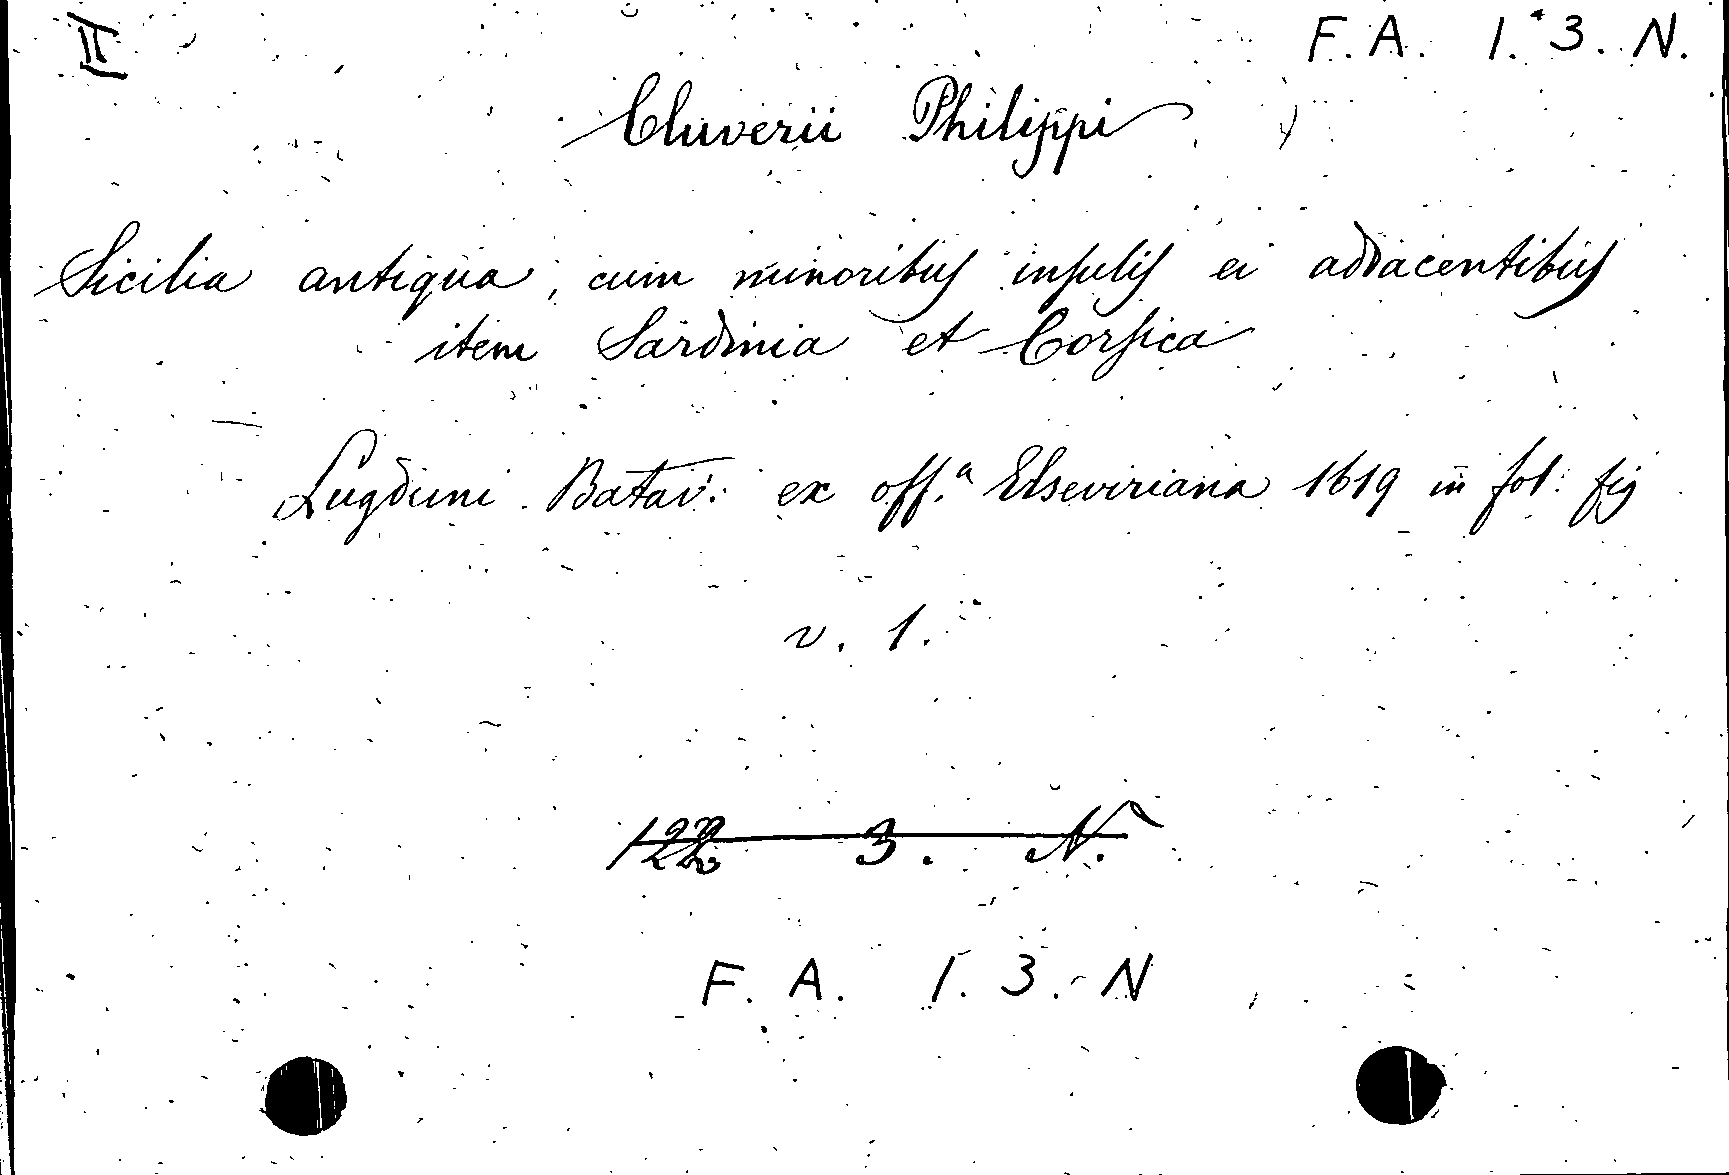 II F. A. 1. 3. N.
Cluverii Philippi
Sicilia antiqua, cum minoribus insulis ei adiacentibus
item Sardinia et Corsica
Lugduni Batav: ex off.ª Elseviriana 1619 in fol: fig
v. 1.
122 3. N.
F. A. 1. 3. N